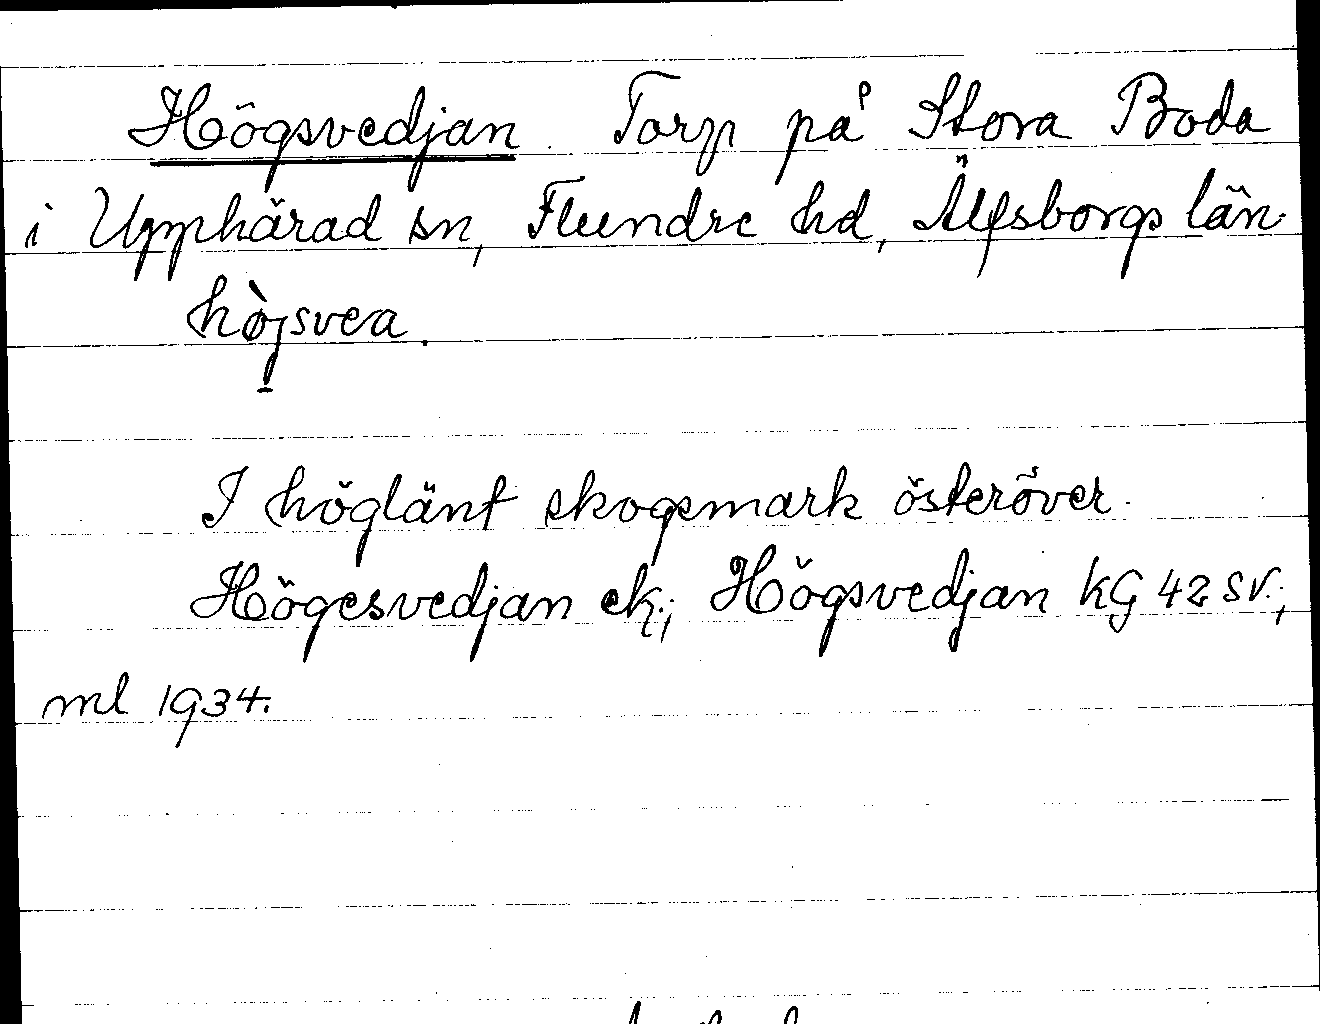 Högsvedjan. Torp på Stora Boda
i Upphärad sn, Flundre hd, Älfsborgs län.
hø̀jsvea.
I höglänt skogsmark österöver.
Högesvedjan ek.; Högsvedjan KG 42 SV.;
ml 1934.